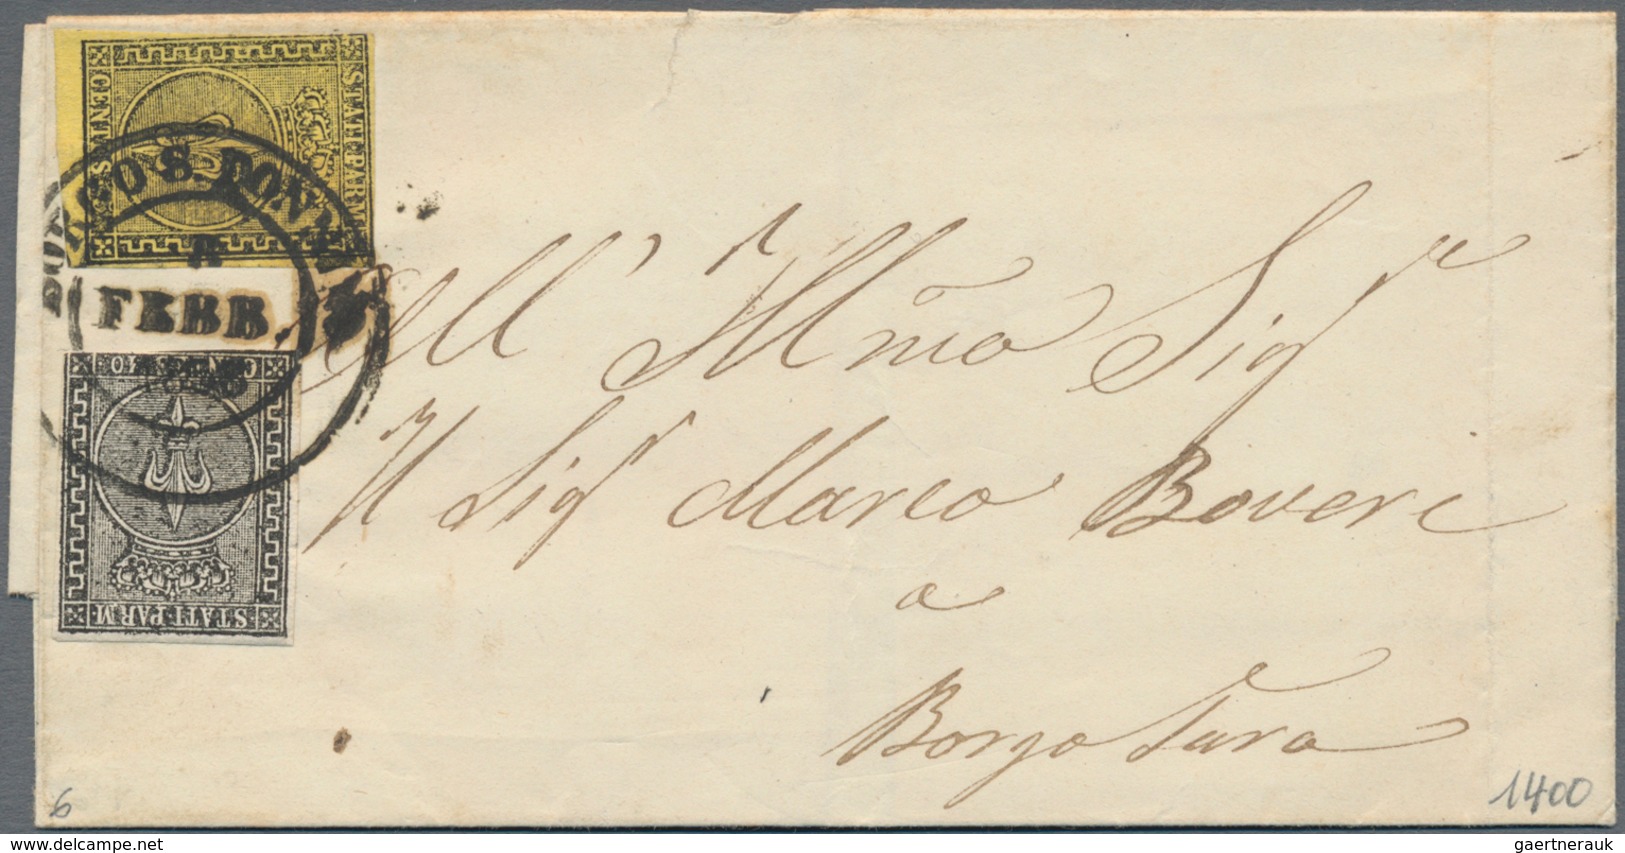 STATI PARM
CENT. 5
BORGO S. DONNINO
8
FEBB.
CENT. 10
STATI PARM
All' Illmo Sigr
Il Sigr Marco Boveri
a
Borgo Taro
6
1400
gaertnerauk